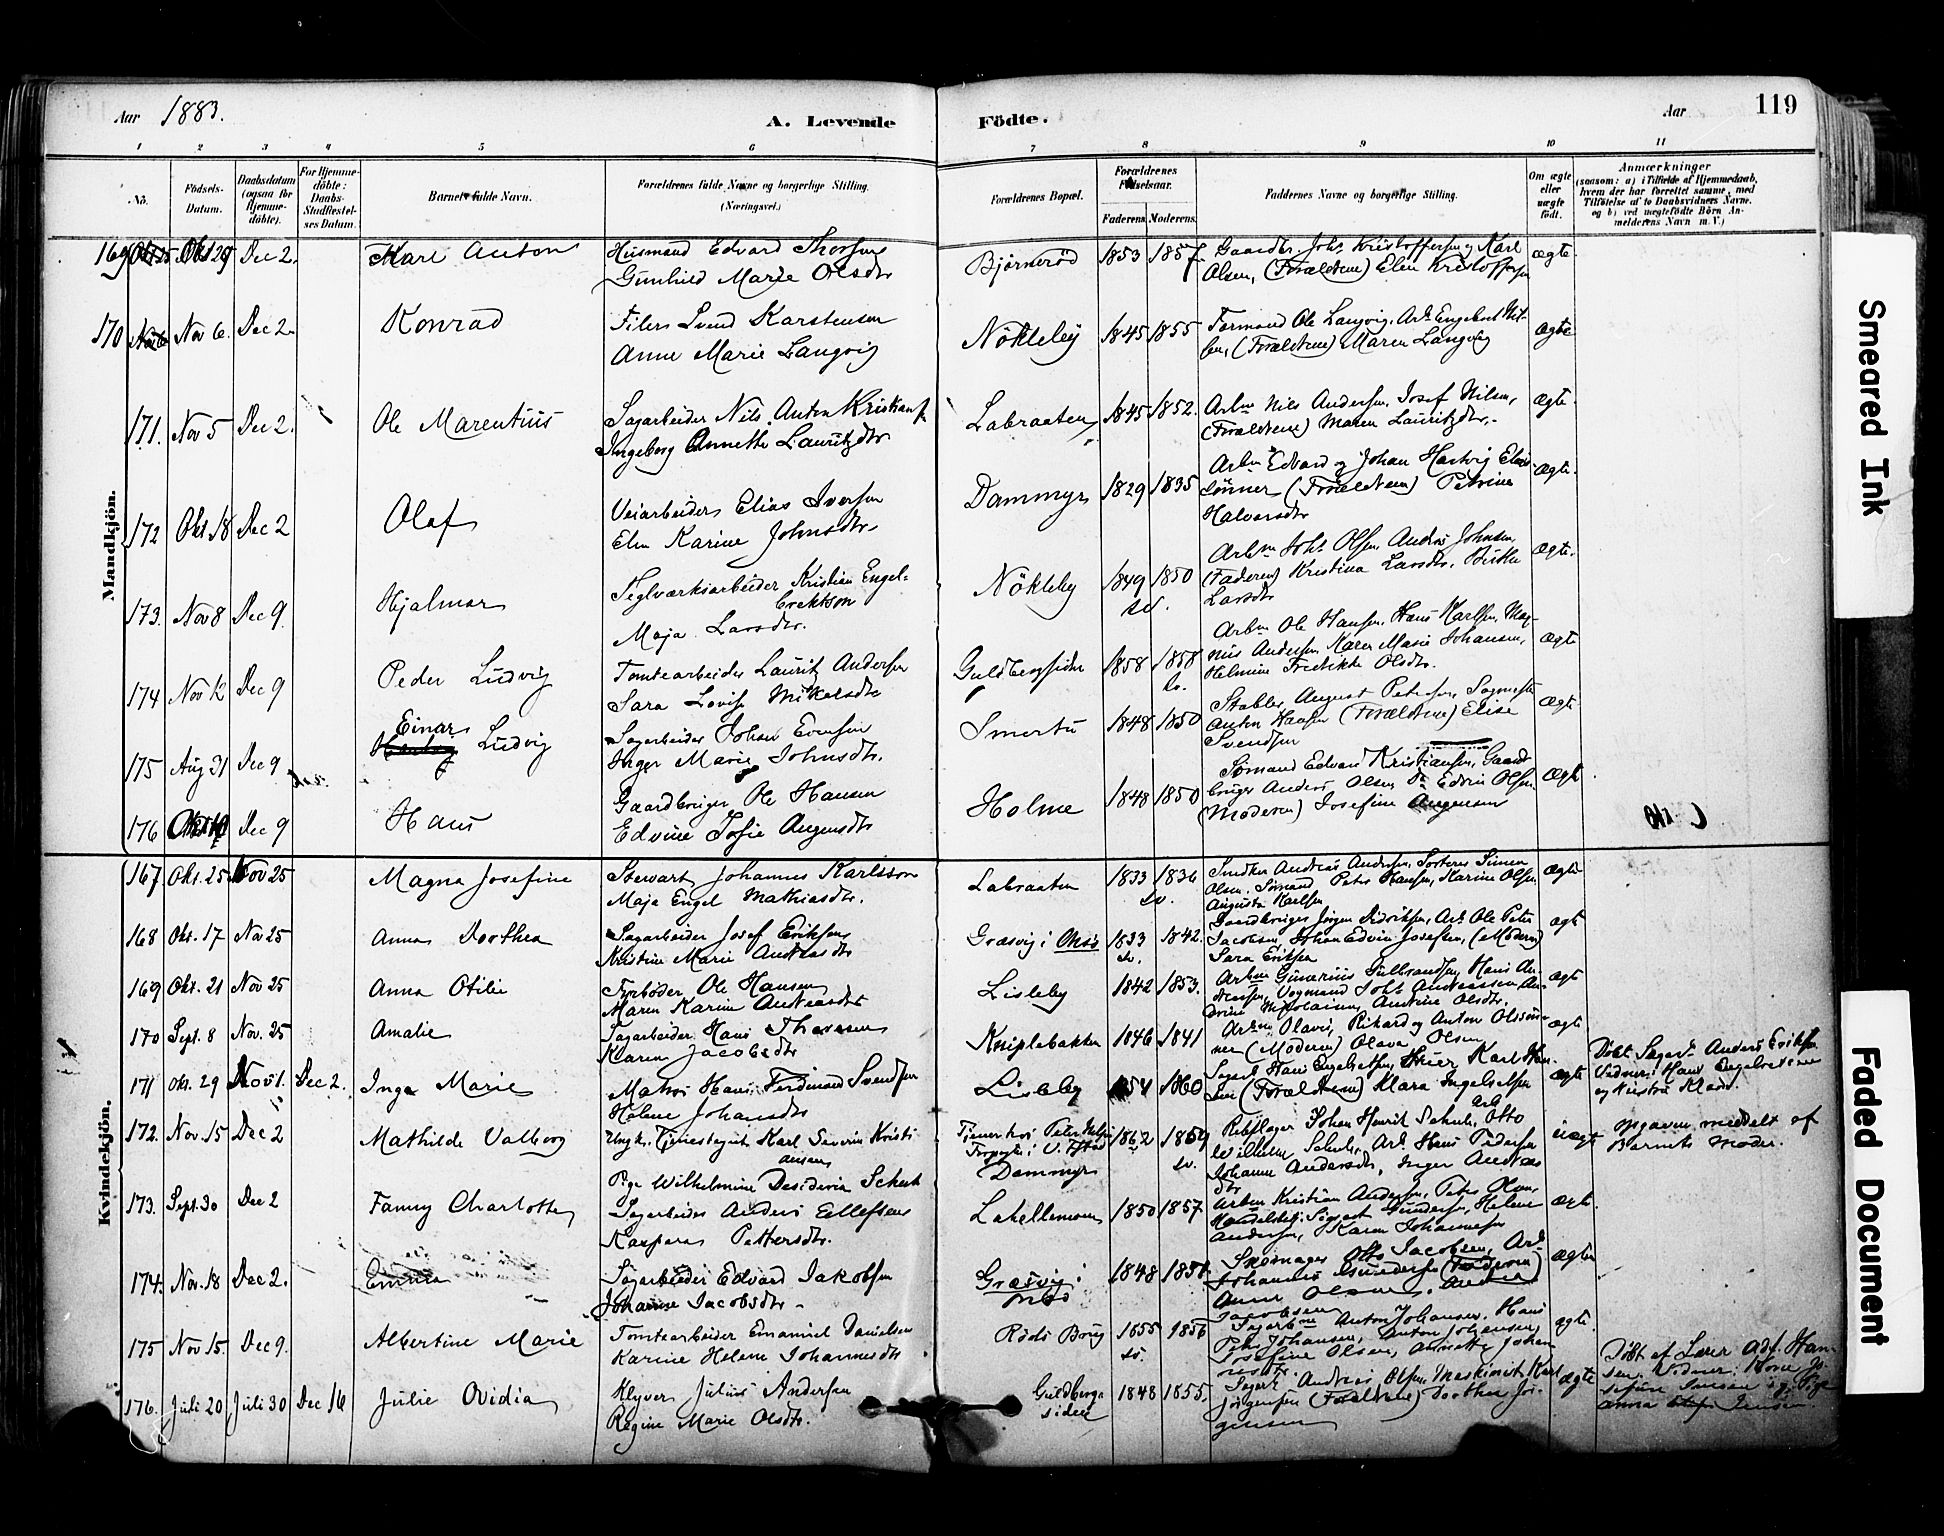 Aar 1883.
A. Levende Födte.
Aar 119
1 2 3 4 5 6 7 8 9 10 11
No.
Födsels-Datum.
Daabsdatum (ogsaa for Hjemme-döbte).
For Hjemme-döbte: Daabs-Stadfæstel-ses Datum.
Barnets fulde Navn.
Forældrenes fulde Navne og borgerlige Stilling. (Næringsvei.)
Forældrenes Bopæl.
Forældrenes Fødselsaar.
Faderens. Moderens.
Faddernes Navne og borgerlige Stilling.
Om ægte eller uægte födt.
Anmærkninger
(saasom: a) i Tilfælde af Hjemmedaab,
hvem der har forrettet samme, med
Tilföielse af to Daabsvidners Navne.
og b) ved uægtefödte Börn An-
melderens Navn m. V.)
Mandkjön.
169 Okt 29 Dec 2. Karl Anton
Husmand Edvard Thorsen
Gunhild Marie Olsdtr
Bjørnerød 1853 1857
Gaardbr. Johs Kristoffersen og Karl
Olsen, (Forældrene) Elen Kristoffersen
ægte
170 Nov 6. Dec 2. Konrad
Filer Svend Karstensen
Anne Marie Langvig
Nökleby 1845 1855
Formand Ole Langvig, Arb. Engebret Nil-
sen, (Forældrene) Maren Langvig
ægte
171. Nov 5 Dec 2. Ole Marentius
Sagarbeider Nils Anton Kristiansen
Ingeborg Annette Lauritzdtr
Labraaten 1845 1852.
Arbm Nils Andersen, Josef Nilsen,
(Forældrene) Maren Lauritzdtr.
ægte
172 Okt. 18 Dec 2 Olaf
Veiarbeider Elias Iversen
Elen Karine Johnsdtr
Dammyr 1829 1835
Arbm Edvard og Johan Hartvig Elias
sønner (Forældrene) Petrine
Halvorsdtr
ægte.
173. Nov 8 Dec 9. Hjalmar
Teglværksarbeider Kristian Engel-
brektson
Maja Larsdtr.
Nökleby 1849 1850
sv.
Arbm Johs Olsen, Andrs Johnsen,
(Faderen) Kristina Larsdtr,
Larsdtr
ægte.
174 Nov 12 Dec 9 Peder Ludvig
Tomtearbeider Lauritz Andersen
Sara Lovise Mikalsdtr
Guldbergsiden 1858 1858
sv.
Arbm Ole Hansen, Hans Karlsen, Mag-
nus Andersen, Karen Marie Johansen,
Helmine Fredrikke Olsdtr.
ægte
175 Aug 31 Dec 9 Einar Ludvig
Sagarbeider Johan Evensen
Inger Marie Johnsdtr.
Smertu 1848 1850
Stabler August Petersen, Sagmester
Anton Hansen (Forældrene) Elise
Svendsen
ægte
176 Dec 9 Hans
Gaardbruger Ole Hansen
Edvine Josefie Augensdtr
Holme 1848 1850
Sømand Edvard Kristiansen, Gaard
bruger Anders Olsen Do Edvin Olsen
(Moderen) Josefine Augensen
ægte
Kvindekjön.
167 Okt. 25 Nov 25 Magna Josefine
Stewart Johannes Karlsson
Maja Engel Mathiasdtr.
Labraaten 1833 1836
sv.
Snedker Andreas Andersen, Sorterer Simen
Olsen, Sømand Peter Hansen, Karine Olsen
Augusta Karlsen
ægte
168 Okt. 17 Nov 25 Anna Dorthea
Sagarbeider Josef Eriksen
Kristine Marie Andreasdtr
Græsvig i Onsø 1833 1842.
sv.
Gaardbruger Jørgen Didriksen, Arb. Ole Peter
Jacobsen, Johan Edvin Josefsen, (Moderen)
Sara Eriksen
ægte
169 Okt. 21 Nov 25 Anna Otilie
Fyrbøder Ole Hansen
Maren Karine Andreasdtr
Lisleby 1842 1853.
Arbm Gunerius Gulbrandsen, Hans An-
dersen, Vognmand Johs Andreassen, An-
drine Nikolaisen, Andrine Olsdtr.
ægte
170 Sept. 8 Nov. 25 Amalie
Sagarbeider Hans Thoresen
Karen Jacobsdtr
Kniplebakken 1846 1841
Arbm Olaves, Rikard og Anton Olssøn-
ner (Moderen) Olava Olsen
ægte
171 Okt. 29 Nov 1. Dec 2. Inga Marie
Matros Hans Ferdinand Svendsen
Helene Johansdtr
Lisleby 1854 1860
Sagarb Hans Engelsetsen, Karl Han-
sen (Forældrene) Klara Ingelsetsen
ægte
Døbt Sagarb. Anders Eriksen
Vidner: Hans Engebretsen
172. Nov. 15 Dec 2 Mathilde Valborg
Ungk. Tjenestegut Karl Severin Kristi
ansen
Pige Wilhelmine Desideria Schenk
Dammyr 1862 1859
sv.
Rebslager Johan Henrik Schenk, Otto
Wilhelm Schenk, Arb. Hans Pedersen
Johanne Andersdtr, Inger Andreas
dtr
uægte
Opgaven meddelt af
Barnets Moder.
173. Sept. 30 Dec 2 Fanny Charlotte
Sagarbeider Anders Ellefsen
Kaspara Pettersdtr.
Lahellemoen 1850 1857
Arbm Kristian Andersen, Peter Olsen,
Handelsbetj. Sigvart Gundersen, Helene
Andersen, Karen Johannesen
ægte.
174. Nov. 18 Dec 2. Emma
Sagarbeider Edvard Jakobsen
Johanne Jacobsdtr
Græsvig i
Onsø 1848 1851
Skomager Otto Jacobsen, Arb
Johannes Gundersen (Faderen)
Anne Olsen, Andrea
Jacobsen
ægte
175 Nov 15. Dec 9. Albertine Marie
Tomtearbeider Emanuel Danielsen
Karine Helene Johannesdtr
Røds Brug 1855 1856
sv.
Sagarbm Anton Johansen, Hans
Peter Johansen, Anton Johansen,
Josefine Olsen, Annette Johan
nesdtr.
ægte
176. Juli 20 Juli 30 Dec 16 Julie Ovidia
Klyver Julius Andersen
Regine Marie Olsdtr.
Guldberg-
siden 1848 1855.
Sagarb Andreas Olsen, Maskinist Karl
Jørgensen (Forældrene) Dorthea Jør-
gensen
ægte
Døbt af Lærer Adf. Han-
sen. Vidner: Kone Jo-
sefine Jensen og Pige
Anna Jensen.
Smeared Ink
Faded Document